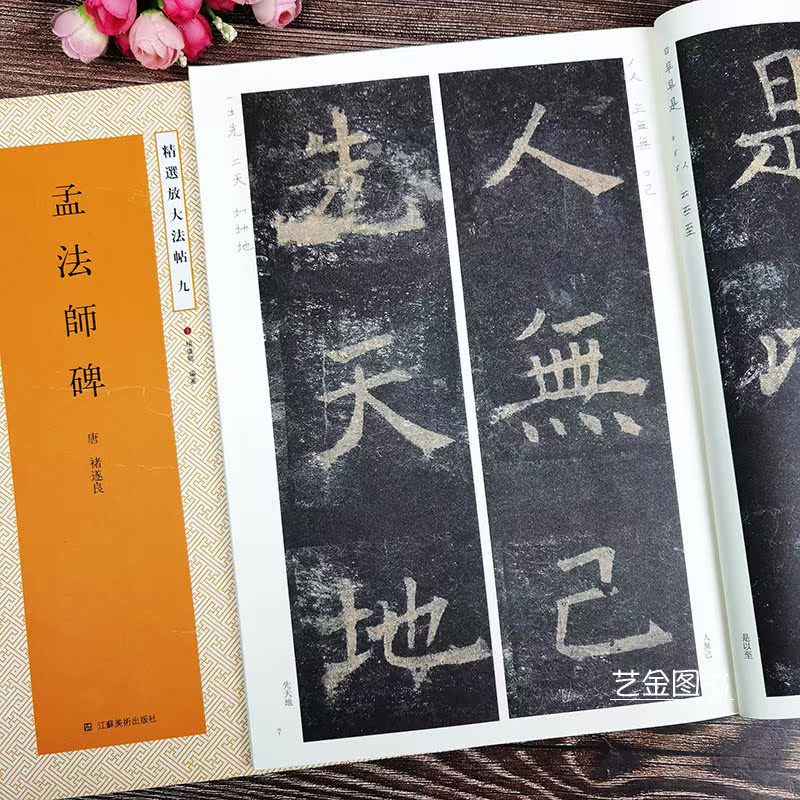 精選放大法帖 九
孟法師碑
唐 褚遂良
編著
江蘇美術出版社
是以
人無己
先天地
是以至
人無己
先天地
7
艺金图